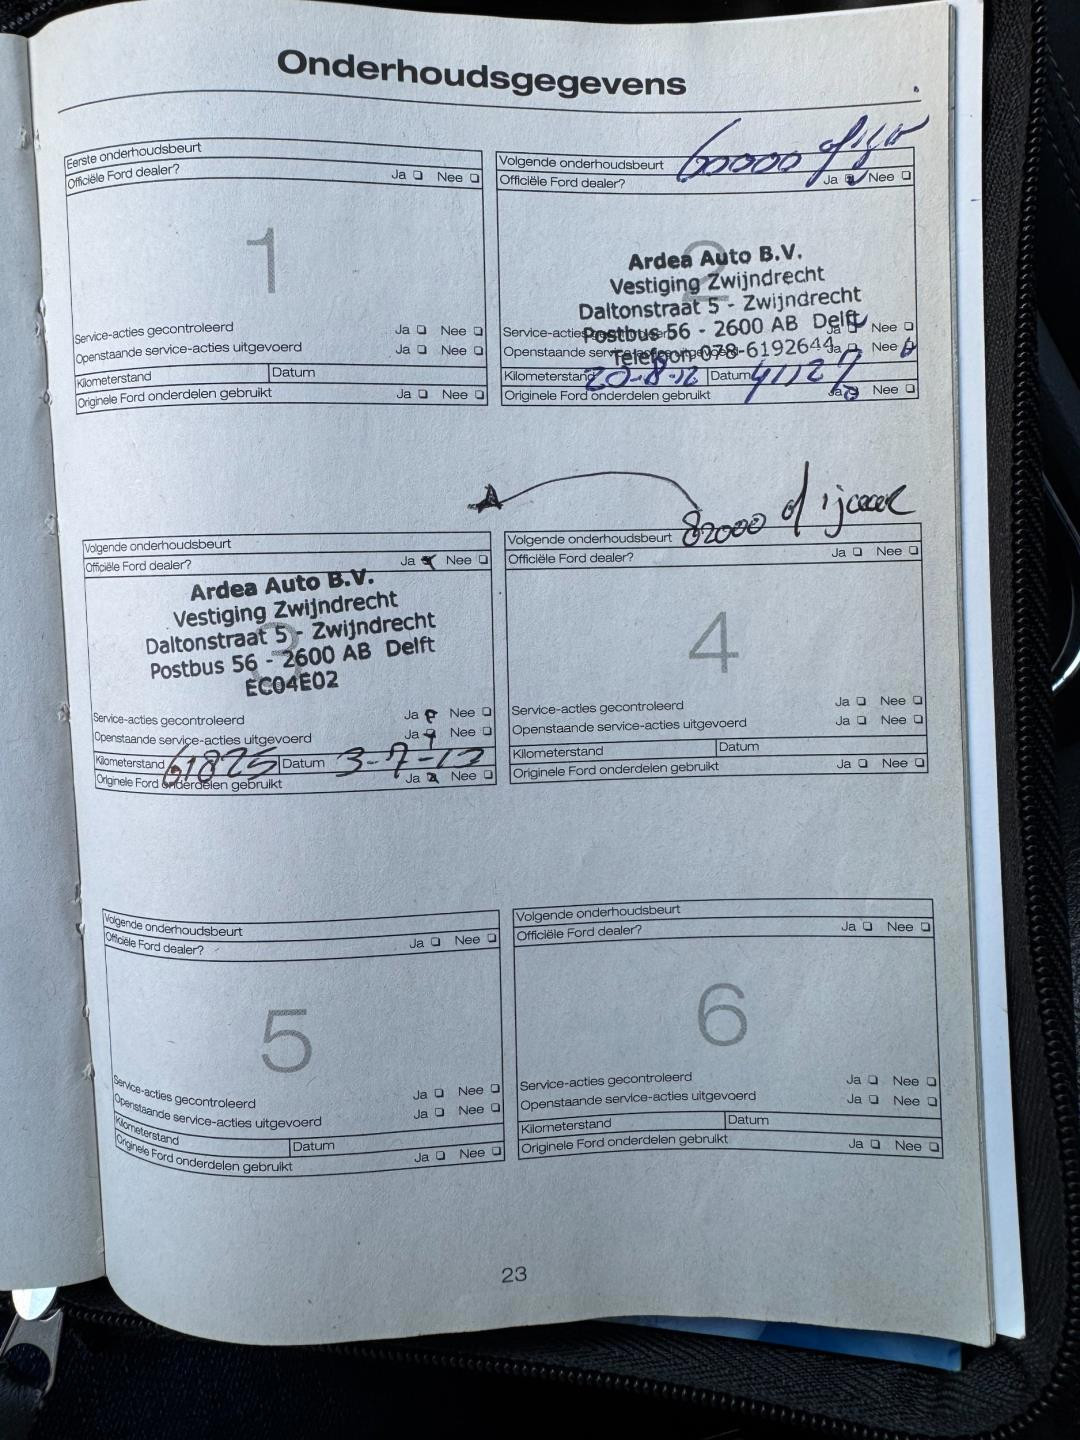 Onderhoudsgegevens
Eerste onderhoudsbeurt
Officiële Ford dealer? Ja Nee
1
Service-acties gecontroleerd Ja Nee
Openstaande service-acties uitgevoerd Ja Nee
Kilometerstand Datum
Originele Ford onderdelen gebruikt Ja Nee
Volgende onderhoudsbeurt 60000 of
Officiële Ford dealer? Ja Nee
2
Ardea Auto B.V.
Vestiging Zwijndrecht
Daltonstraat 5 - Zwijndrecht
Postbus 56 - 2600 AB Delft
Telefoon 078-6192644
Service-acties Ja Nee
Openstaande service-acties uitgevoerd Ja Nee
Kilometerstand 20-8-12 Datum 41127
Originele Ford onderdelen gebruikt Ja Nee
Volgende onderhoudsbeurt
Officiële Ford dealer? Ja Nee
3
Ardea Auto B.V.
Vestiging Zwijndrecht
Daltonstraat 5 - Zwijndrecht
Postbus 56 - 2600 AB Delft
EC04E02
Service-acties gecontroleerd Ja Nee
Openstaande service-acties uitgevoerd Ja Nee
Kilometerstand 61825 Datum 3-7-13
Originele Ford onderdelen gebruikt Ja Nee
Volgende onderhoudsbeurt 82000 of 1 jaar
Officiële Ford dealer? Ja Nee
4
Service-acties gecontroleerd Ja Nee
Openstaande service-acties uitgevoerd Ja Nee
Kilometerstand Datum
Originele Ford onderdelen gebruikt Ja Nee
Volgende onderhoudsbeurt
Officiële Ford dealer? Ja Nee
5
Service-acties gecontroleerd Ja Nee
Openstaande service-acties uitgevoerd Ja Nee
Kilometerstand Datum
Originele Ford onderdelen gebruikt Ja Nee
Volgende onderhoudsbeurt
Officiële Ford dealer? Ja Nee
6
Service-acties gecontroleerd Ja Nee
Openstaande service-acties uitgevoerd Ja Nee
Kilometerstand Datum
Originele Ford onderdelen gebruikt Ja Nee
23